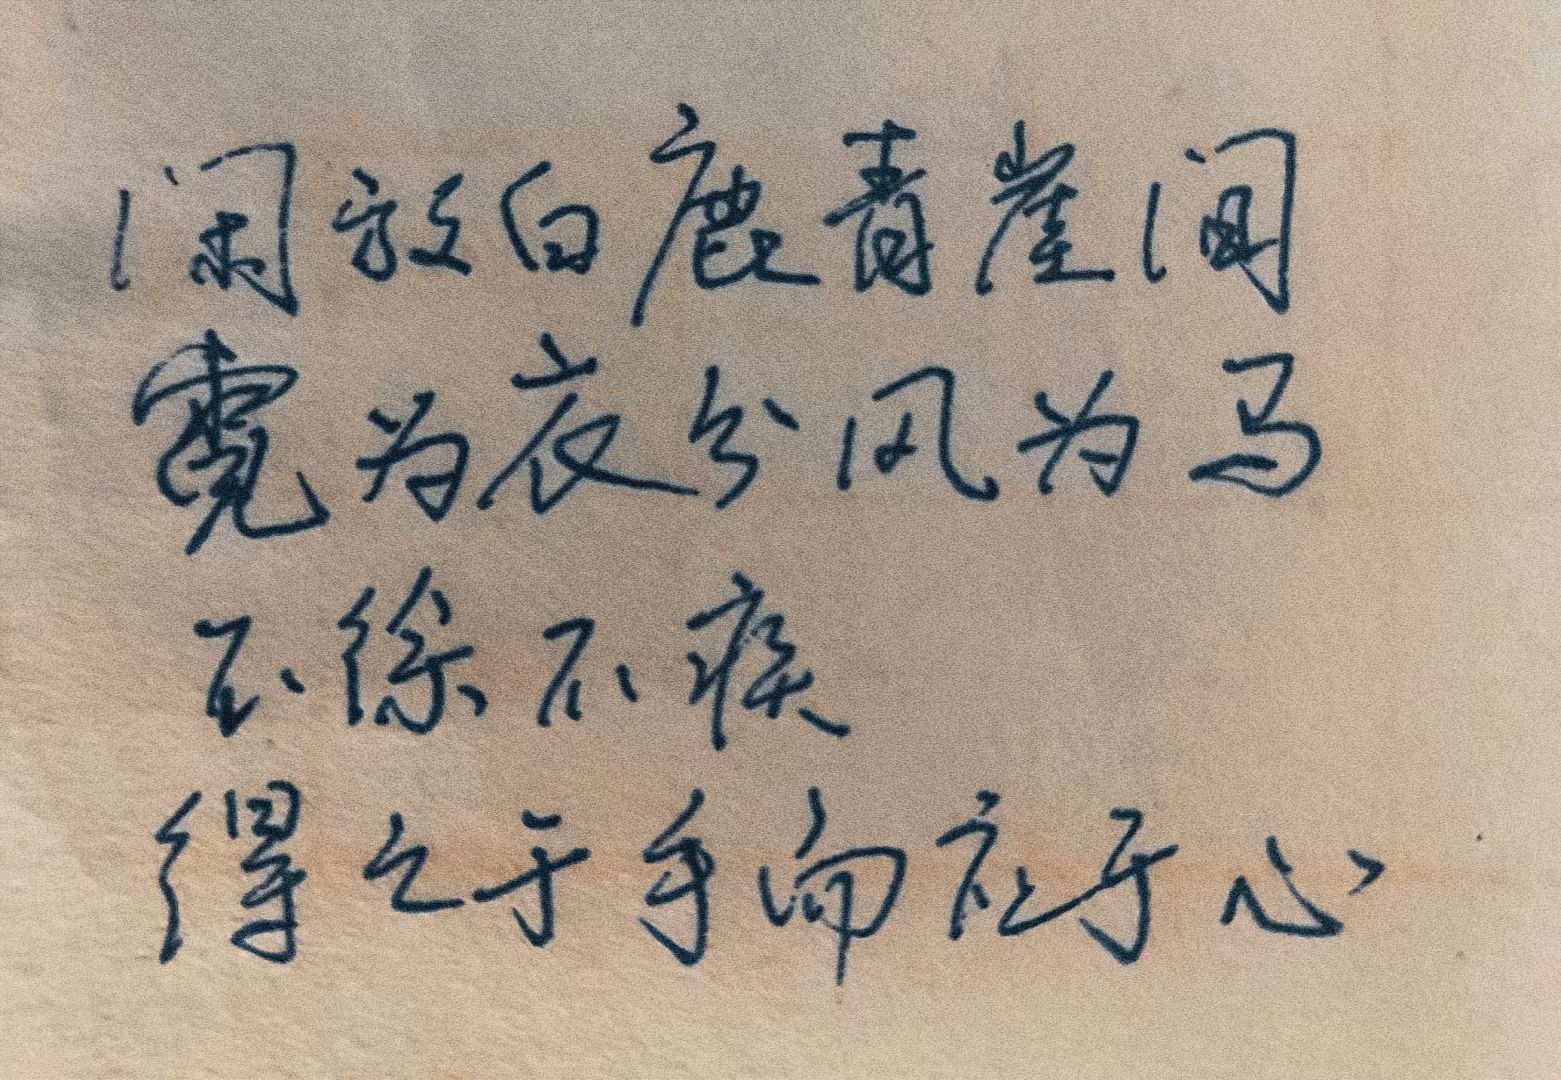 闲放白鹿青崖间
霓为衣兮风为马
不徐不疾
得之于手而应于心